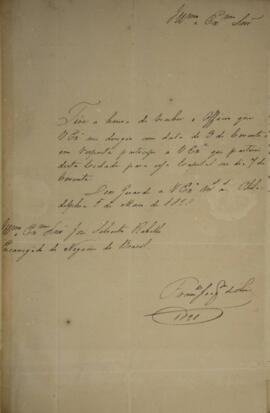 Illmo e Exmo Senr
Tive a honra de receber o Officio que
V Exa me dirigio com data de 3 do Corrente
em resposta participo a V Exa que partirei
desta Cidade para essa Capital no dia 7 do
Corrente.
Deos Guarde a V Exa
de Maio de
Illmo e Exmo Senr Jose Silvestre Rebello
Encarregado de Negocios do Brasil